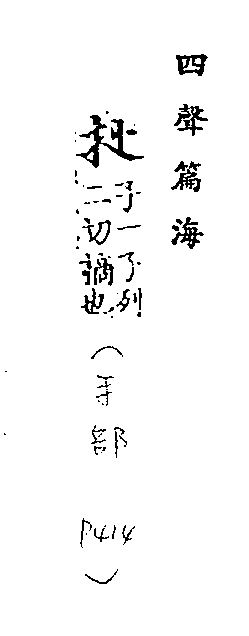 四聲篇海
子一子列
二切摘也
(手部 P414)